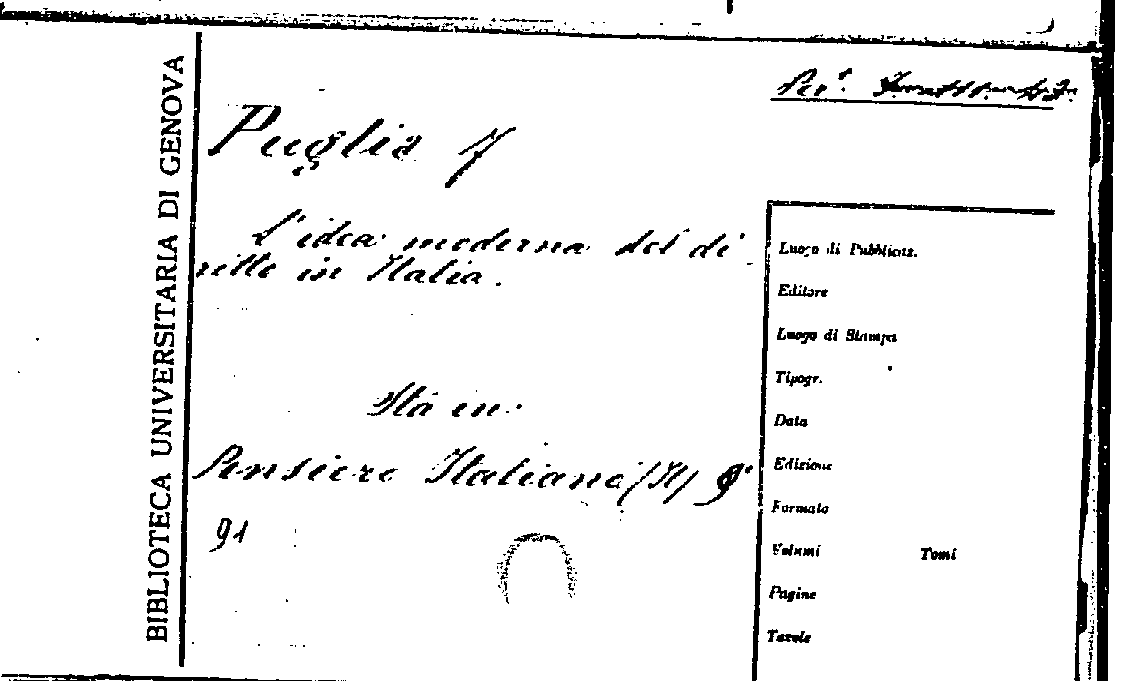 BIBLIOTECA UNIVERSITARIA DI GENOVA
Per.
Puglia F
L'idea moderna del di
ritto in Italia.
Sta in:
Pensiero Italiano (Il)
91
Luogo di Pubblicaz.
Editore
Luogo di Stampa
Tipogr.
Data
Edizione
Formato
Volumi Tomi
Pagine
Tavole